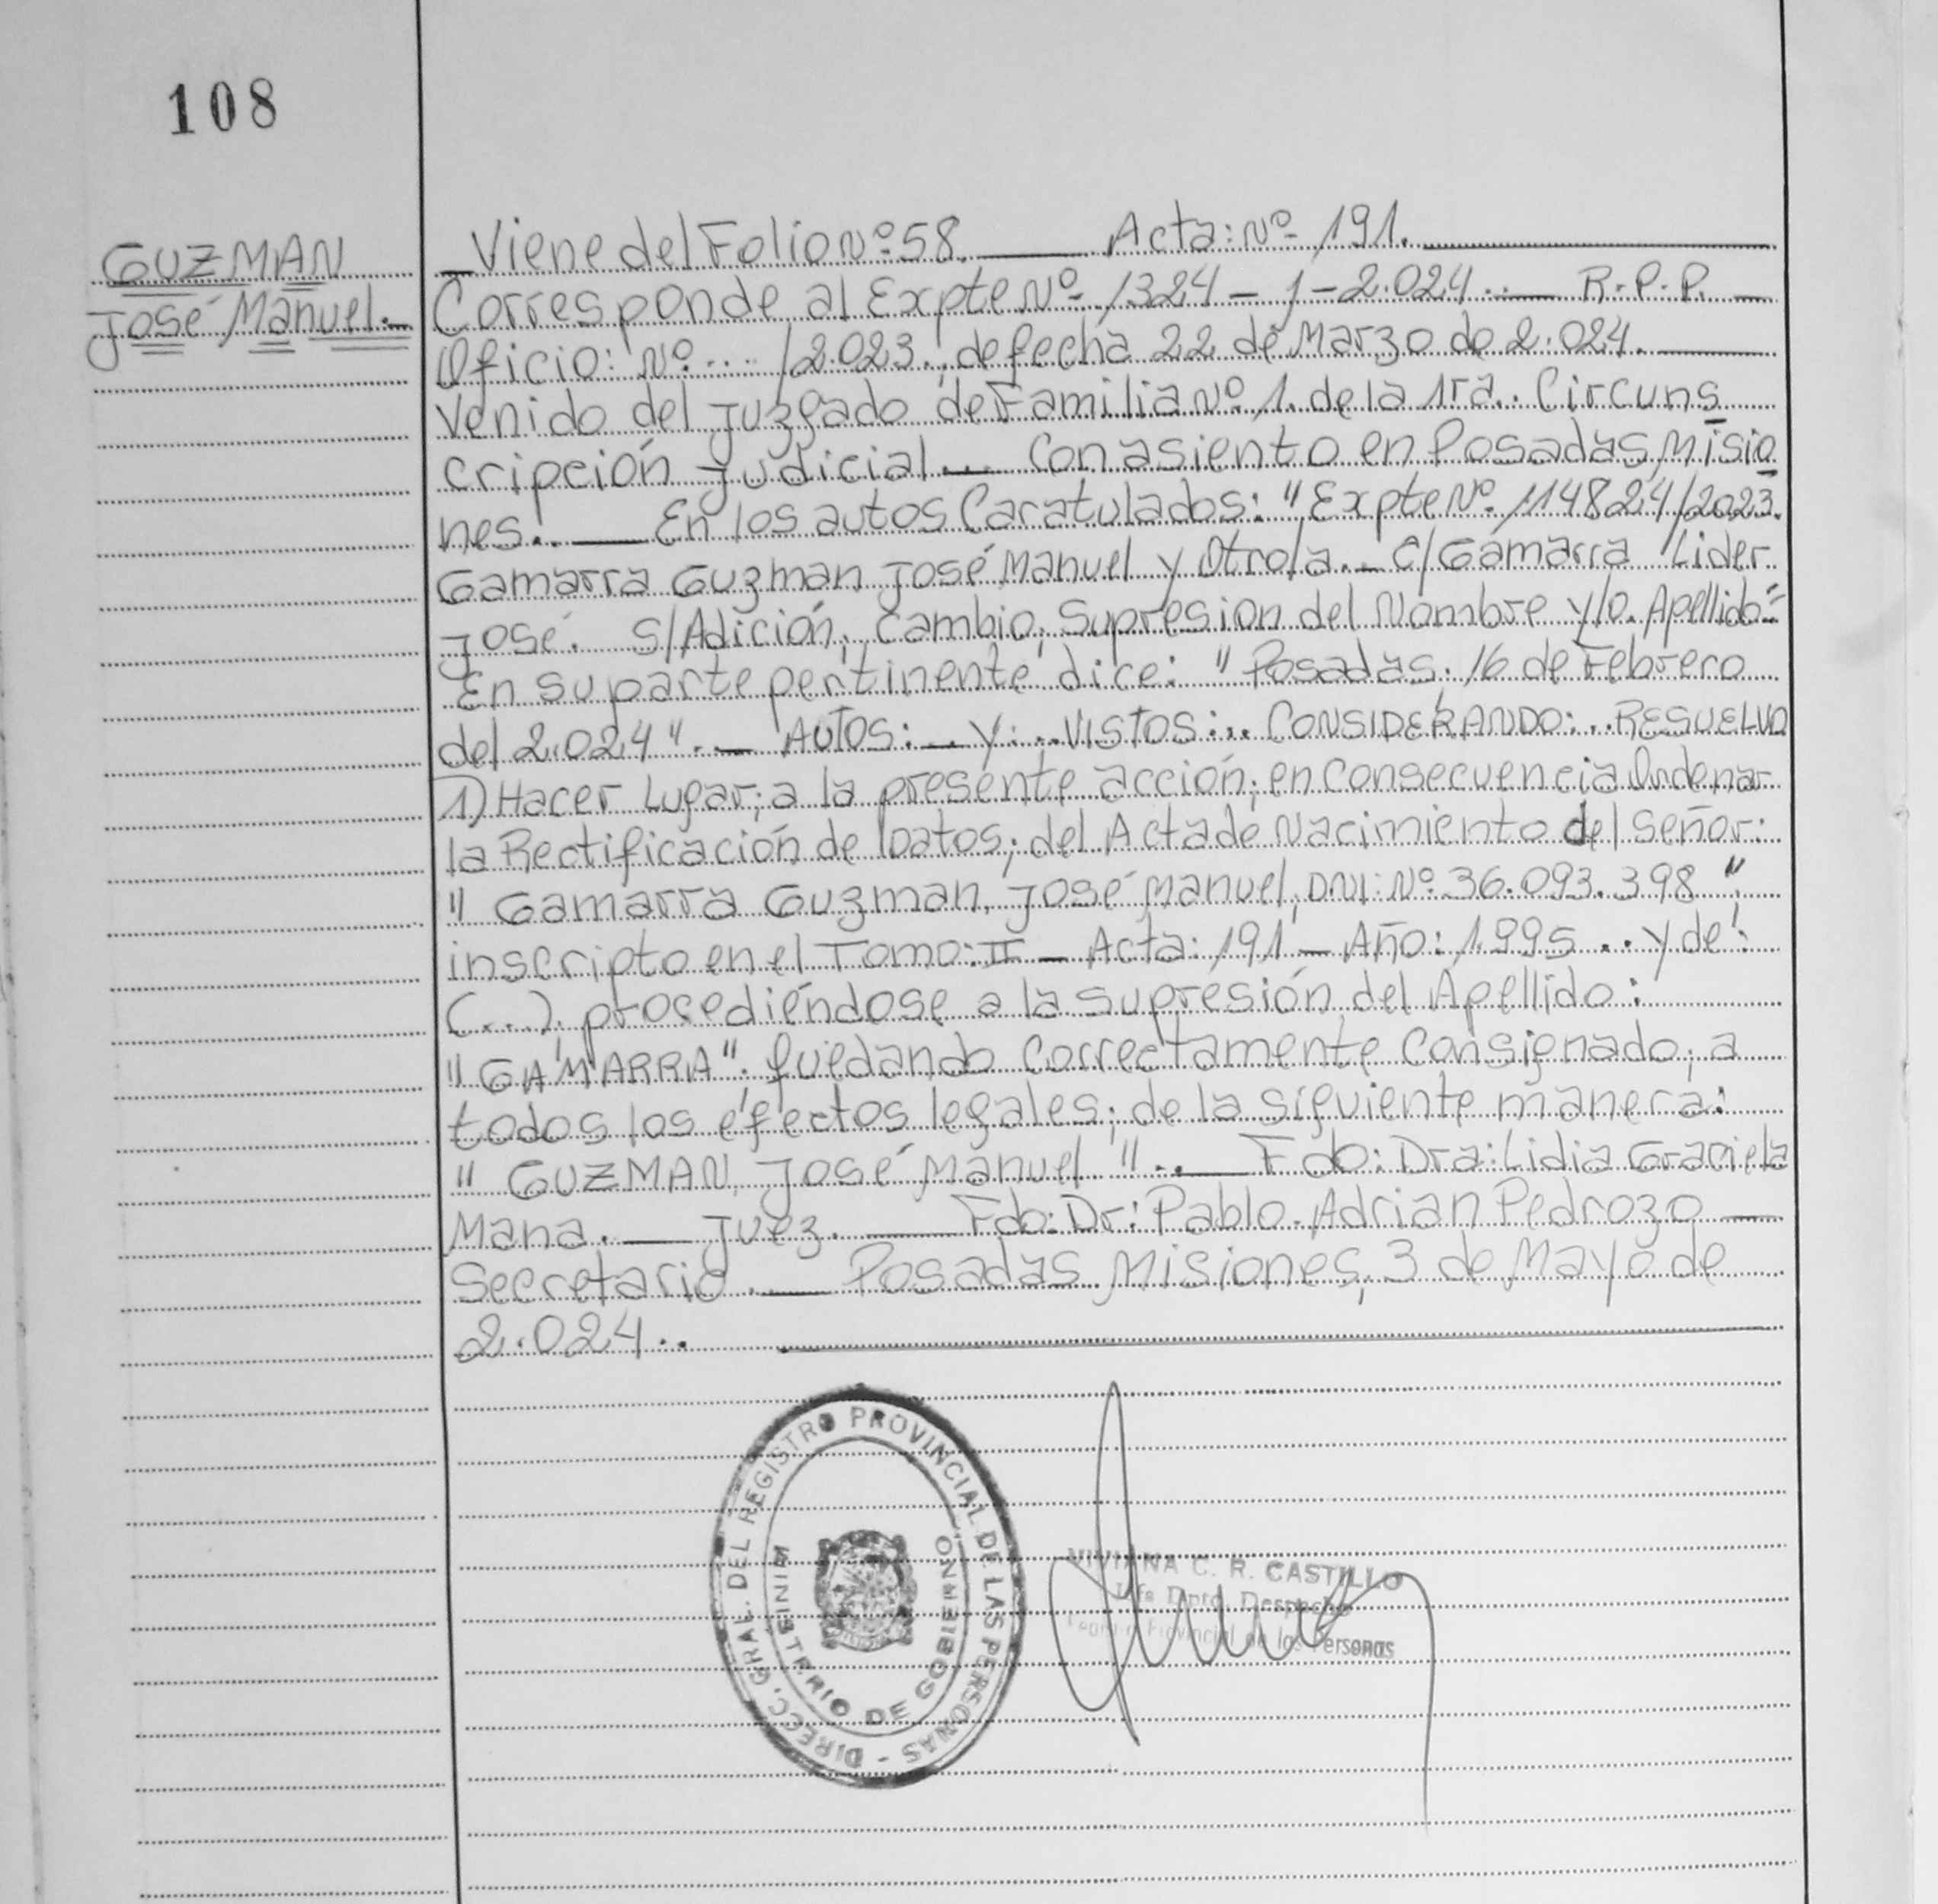 108
GUZMAN
José Manuel.-
Viene del Folio Nº 58. Acta: Nº 191.
Corresponde al Expte Nº 1324 - J - 2.024.. R.P.P.
Oficio: Nº .... /2.023. de fecha 22 de Marzo de 2.024.
Venido del Juzgado de Familia Nº 1. de la 1ra.. Circuns
cripción Judicial. Con asiento en Posadas Misio
nes.. En los autos Caratulados: "Expte Nº 114824/2023.
Gamarra Guzman José Manuel y Otro/a.- C/Gamarra Lider
José. S/Adición, Cambio, Supresion del Nombre y/o. Apellido"
En su parte pertinente dice: "Posadas, 16 de Febrero
del 2.024".. AUTOS: Y:.. VISTOS:.. CONSIDERANDO:.. RESUELVO
1) Hacer Lugar; a la presente acción; en Consecuencia Ordenar
la Rectificación de Datos; del Acta de Nacimiento del Señor:
"Gamarra Guzman, José Manuel, DNI: Nº 36.093.398"
inscripto en el Tomo: II - Acta: 191 - Año: 1.995 .. y de:
(...). procediéndose a la supresión del Apellido:
"GAMARRA". Quedando Correctamente Consignado; a
todos los efectos legales; de la siguiente manera:
"GUZMAN, José Manuel".. Fdo: Dra: Lidia Graciela
Mana. Juez. Fdo: Dr: Pablo Adrian Pedrozo
Secretario. Posadas Misiones, 3 de Mayo de
2.024..
DIRECC. GRAL. DEL REGISTRO PROVINCIAL DE LAS PERSONAS -
MINISTERIO DE GOBIERNO
VIVIANA C. R. CASTILLO
Jefe Dpto. Despacho
Registro Provincial de las Personas